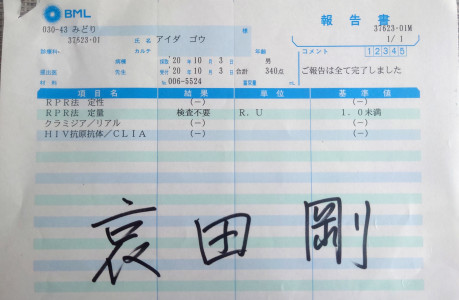 BML 報告書
030-43 みどり 37623-01M
37623-01 氏名 アイダ ゴウ 様 1/1
診療科・ カルテ 年齢 コメント 12345
病棟 採取 '20年10月3日 男
提出医 先生 受付 '20年10月3日 合計 340点 ご報告は全て完了しました
材料 No 006-5524
項目名 結果 単位 基準値
RPR法 定性 (-) (-)
RPR法 定量 検査不要 R.U 1.0未満
クラミジア/リアル (-) (-)
HIV抗原抗体/CLIA (-) (-)
哀田 剛